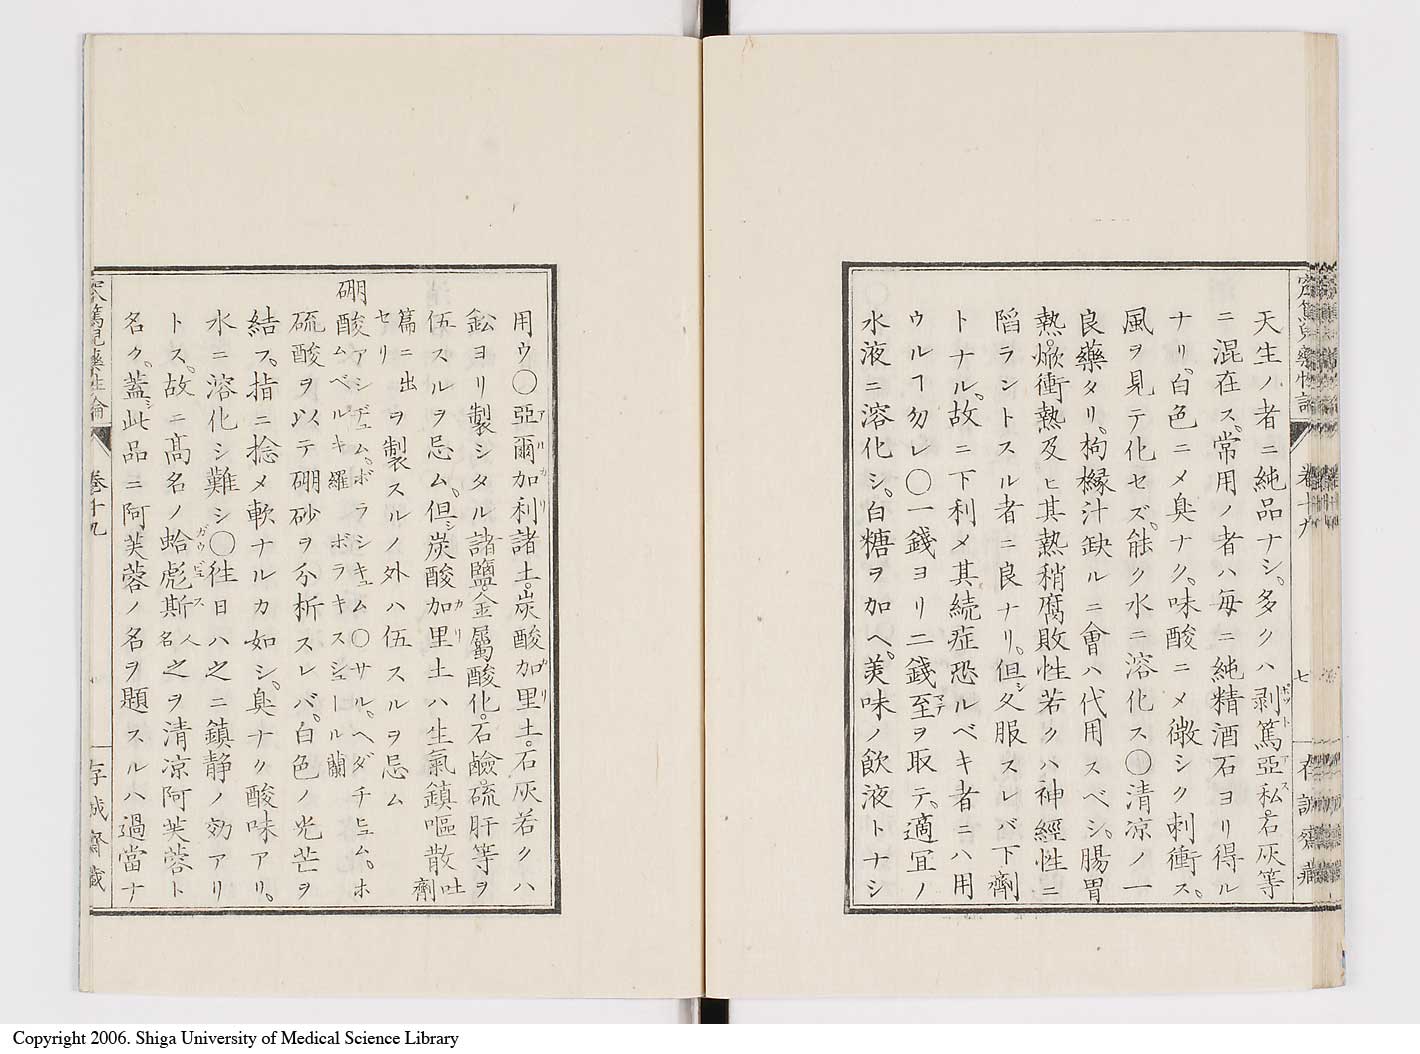 天生ノ者ニ純品ナシ。多クハ剥篤亞私。石灰等
ポットアス
ニ混在ス。常用ノ者ハ毎ニ純精酒石ヨリ得ル
ナリ。白色ニメ臭ナク。味酸ニメ微シク刺衝ス。
風ヲ見テ化セズ。能ク水ニ溶化ス〇清凉ノ一
良藥タリ。枸櫞汁缺ルニ會ハ代用スベシ。腸胃
熱。焮衝熱及ヒ其熱稍腐敗性若クハ神經性ニ
陷ラントスル者ニ良ナリ。但シ久服スレバ下劑
トナル。故ニ下利メ其続症恐ルベキ者ニハ用
ウルヿ勿レ〇一錢ヨリ二錢至ヲ取テ。適宜ノ
マデ
水液ニ溶化シ。白糖ヲ加ヘ。美味ノ飲液トナシ
卷十九
七
用ウ〇亞爾加利諸土。炭酸加里土。石灰若クハ
アリカリ
カリ
鈆ヨリ製シタル諸鹽。金屬酸化。石鹸。硫肝等ヲ
伍スルヲ忌ム。但シ炭酸加里土ハ生氣鎮嘔散吐劑
カリ
篇ニ出セリヲ製スルノ外ハ伍スルヲ忌ム
硼酸アシデュム。ボラシキュム〇サル。ヘダチヒュム。ホムベルキ羅 ボラキスシュール蘭
硫酸ヲ以テ硼砂ヲ分析スレバ。白色ノ光芒ヲ
結フ。指ニ捻メ軟ナルカ如シ。臭ナク酸味アリ。
水ニ溶化シ難シ〇徃日ハ之ニ鎮静ノ効アリ
トス。故ニ髙名ノ蛤彪斯人名之ヲ清凉阿芙蓉ト
名ク。蓋シ此品ニ阿芙蓉ノ名ヲ題スルハ過當ナ
卷十九
存誠齋藏
Copyright 2006. Shiga University of Medical Science Library